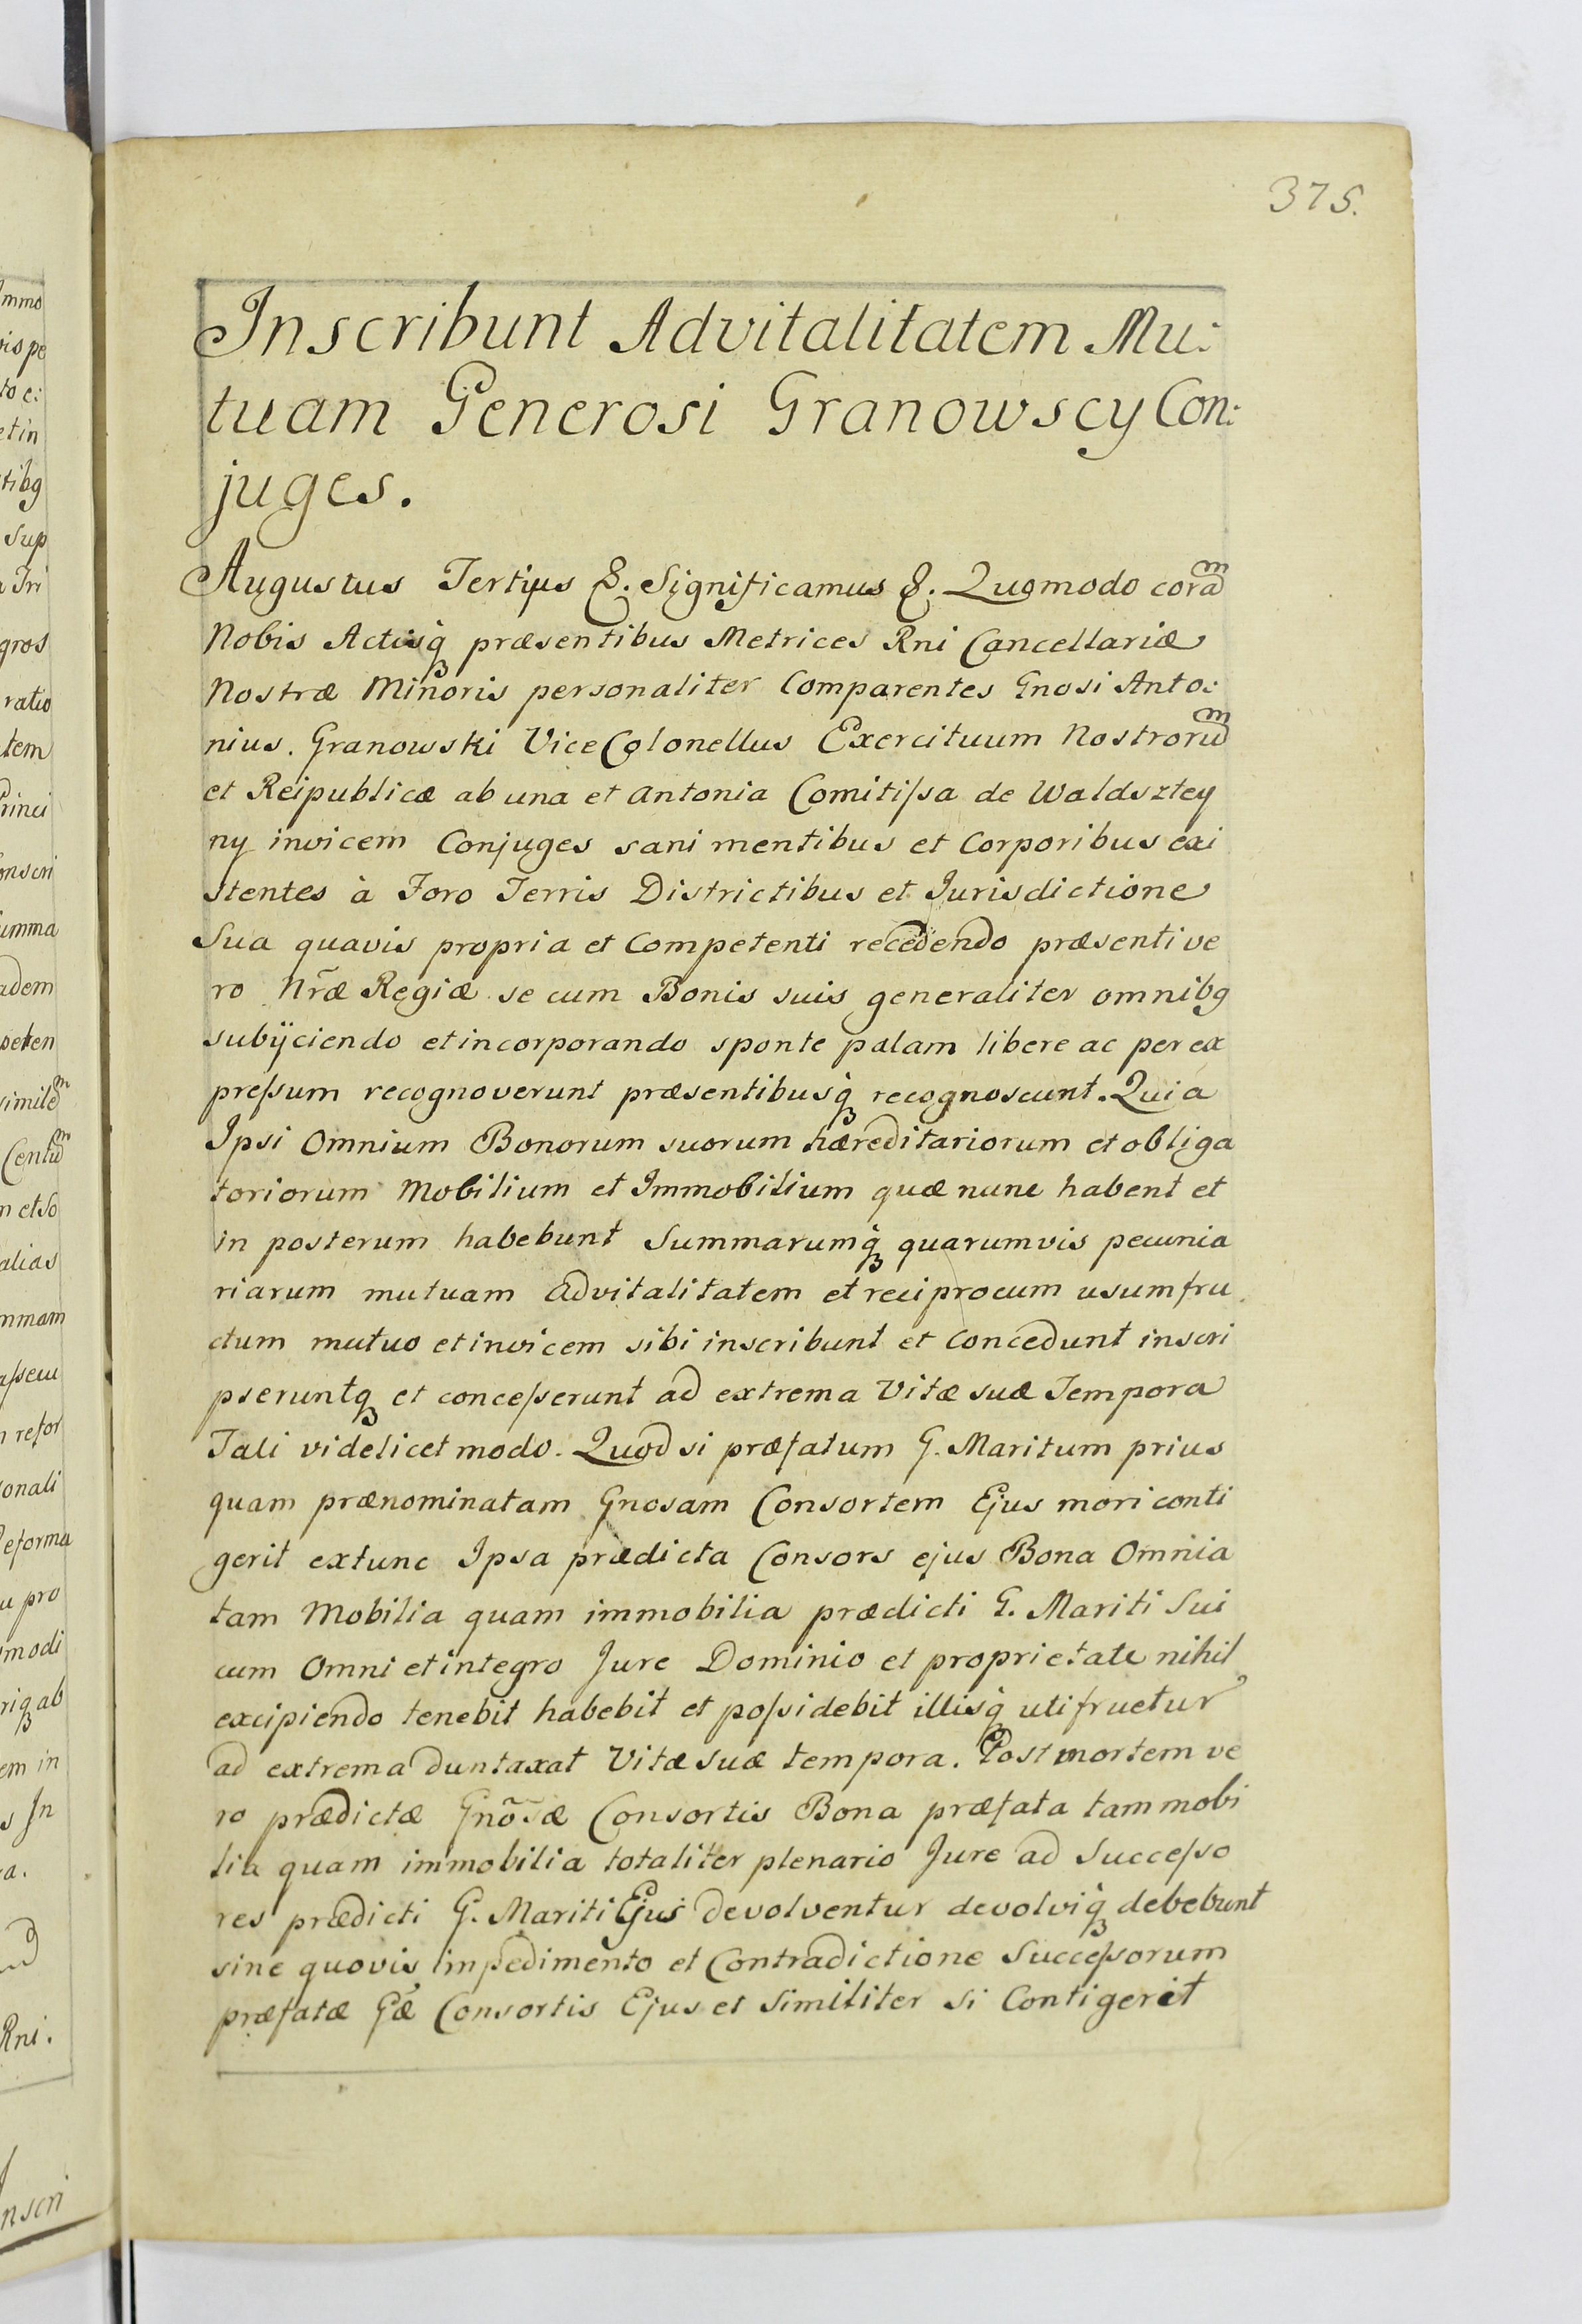 375.
Inscribunt Advitalitatem Mu:
tuam Generosi Granowscy Con:
juges.
Augustus Tertius &. Significamus &. Quomodo coram
Nobis Actisq́ præsentibus Metrices Rni Cancellariæ
Nostræ Minoris personaliter Comparentes Gnosi Anto:
nius. Granowski Vice Colonellus Exercituum Nostrorum
et Reipublicæ ab una et Antonia Comitiſsa de Waldsztey
ny invicem Conjuges sani mentibus et Corporibus exi
stentes à Foro Terris Districtibus et Jurisdictione
Sua quavis propria et Competenti recedendo præsenti ve
ro Nr̃æ Regiæ se cum Bonis suis generaliter omnibg
subijciendo et incorporando sponte palam libere ac per ex
preſsum recognoverunt præsentibusq́ recognoscunt. Quia
Ipsi Omnium Bonorum suorum hæreditariorum et obliga
toriorum Mobilium et Immobilium quæ nunc habent et
in posterum habebunt Summarumq́ quarumvis pecunia
riarum mutuam advitalitatem et reciprocum usumfru
ctum mutuo et invicem sibi inscribunt et Concedunt inscri
pseruntq́ et conceſserunt ad extrema Vitæ suæ Tempora
Tali videlicet modo. Quod si præfatum G. Maritum prius
quam prænominatam Gnosam Consortem Ejus mori conti
gerit extunc Ipsa prædicta Consors ejus Bona Omnia
tam Mobilia quam immobilia prædicti G. Mariti Sui
cum Omni et integro Jure Dominio et proprietate nihil
excipiendo tenebit habebit et poſsidebit illisq́ utifruetur
ad extrema duntaxat Vitæ suæ tempora. Post mortem ve
ro prædictæ Gnõsæ Consortis Bona præfata tam mobi
lia quam immobilia totaliter plenario Jure ad Succeſso
res prædicti G. Mariti Ejus devolventur devolviq́ debebunt
sine quovis impedimento et Contradictione Succeſsorum
præfatæ Gæ Consortis Ejus et Similiter si Contigerit